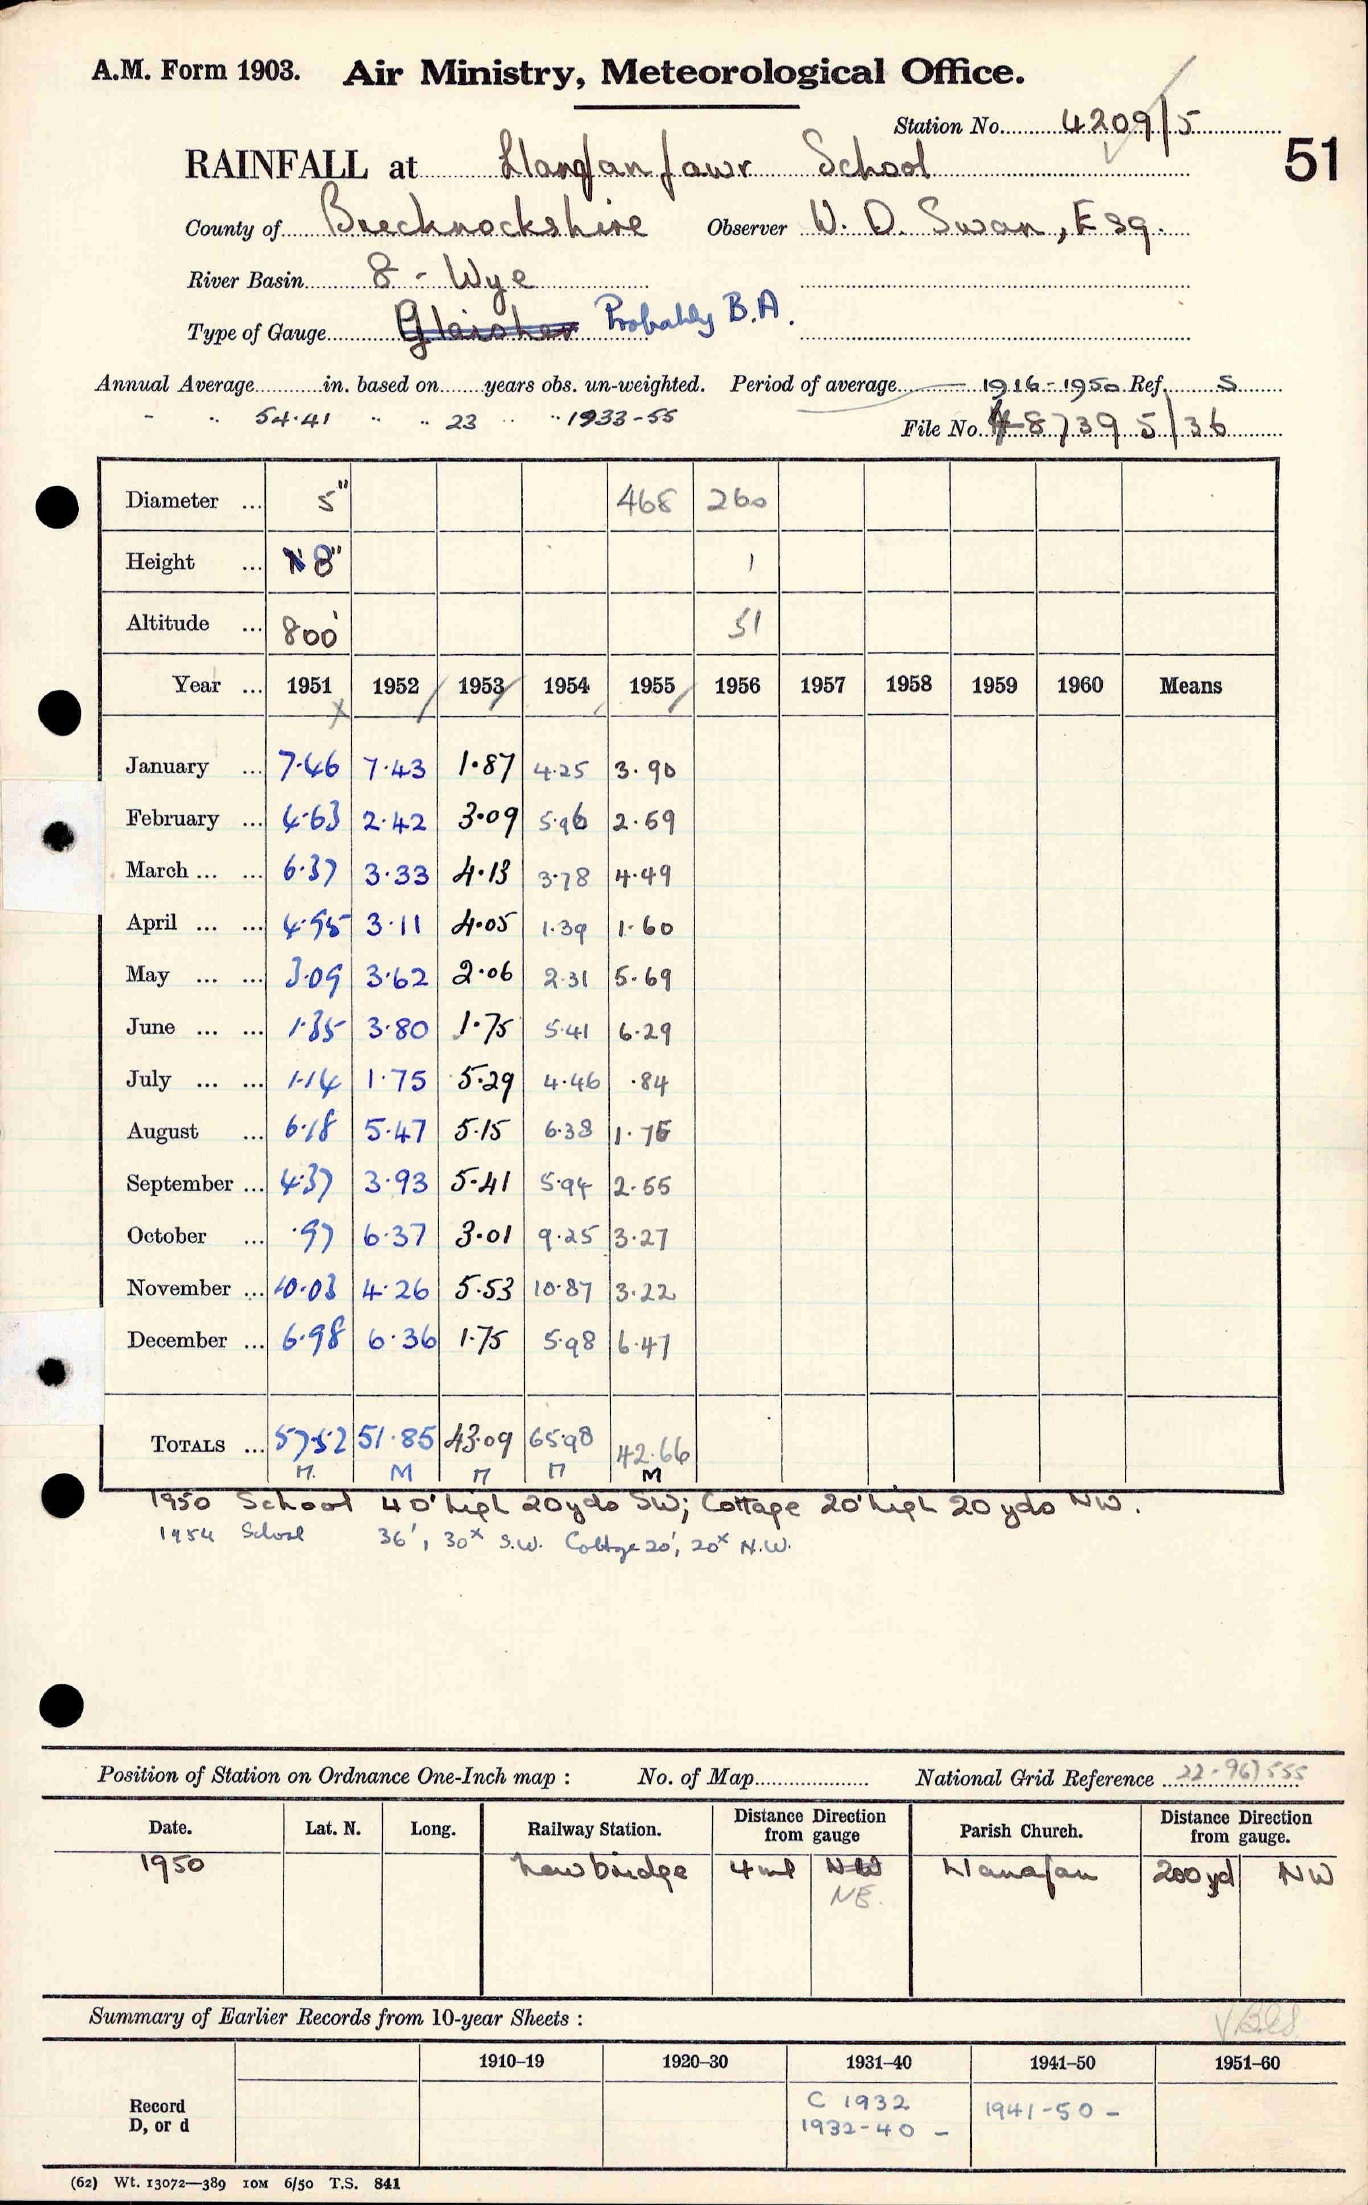 A.M. Form 1903. Air Ministry, Meteorological Office.
Station No. 4209/5
51
RAINFALL at Llanafan fawr School
County of Brecknockshire Observer W. D. Swan, Esq.
River Basin 8 - Wye
Type of Gauge Glaisher Probably B.A.
Annual Average in. based on years obs. un-weighted. Period of average 1916-1950 Ref. S
- .. 54.41 .. .. 23 .. .. 1933-55
File No. 487395/36
Diameter ... 5" 468 260
Height ... 8" 1
Altitude ... 800' 51
Year ... 1951 1952 1953 1954 1955 1956 1957 1958 1959 1960 Means
January ... 7.46 7.43 1.87 4.25 3.90
February ... 4.63 2.42 3.09 5.96 2.59
March ... ... 6.37 3.33 4.13 3.78 4.49
April ... ... 4.95 3.11 4.05 1.39 1.60
May ... ... 3.09 3.62 2.06 2.31 5.69
June ... ... 1.35 3.80 1.75 5.41 6.29
July ... ... 1.14 1.75 5.29 4.46 .84
August ... 6.18 5.47 5.15 6.38 1.75
September ... 4.37 3.93 5.41 5.94 2.55
October ... .97 6.37 3.01 9.25 3.27
November ... 10.03 4.26 5.53 10.87 3.22
December ... 6.98 6.36 1.75 5.98 6.47
TOTALS ... 57.52 51.85 43.09 65.98 42.66
M M M M M
1950 School 40' high 20yds SW; Cottage 20' high 20 yds NW.
1954 School 36', 30x S.W. Cottage 20', 20x N.W.
Position of Station on Ordnance One-Inch map : No. of Map National Grid Reference 22-967555
Date. Lat. N. Long. Railway Station. Distance Direction from gauge Parish Church. Distance Direction from gauge.
1950 Newbridge 4 ml NW Llanafan 200 yd NW
NE.
Summary of Earlier Records from 10-year Sheets :
1910–19 1920–30 1931–40 1941–50 1951–60
Record D, or d
C 1932
1932-40 - 1941-50 -
(62) Wt. 13072—389 10M 6/50 T.S. 841